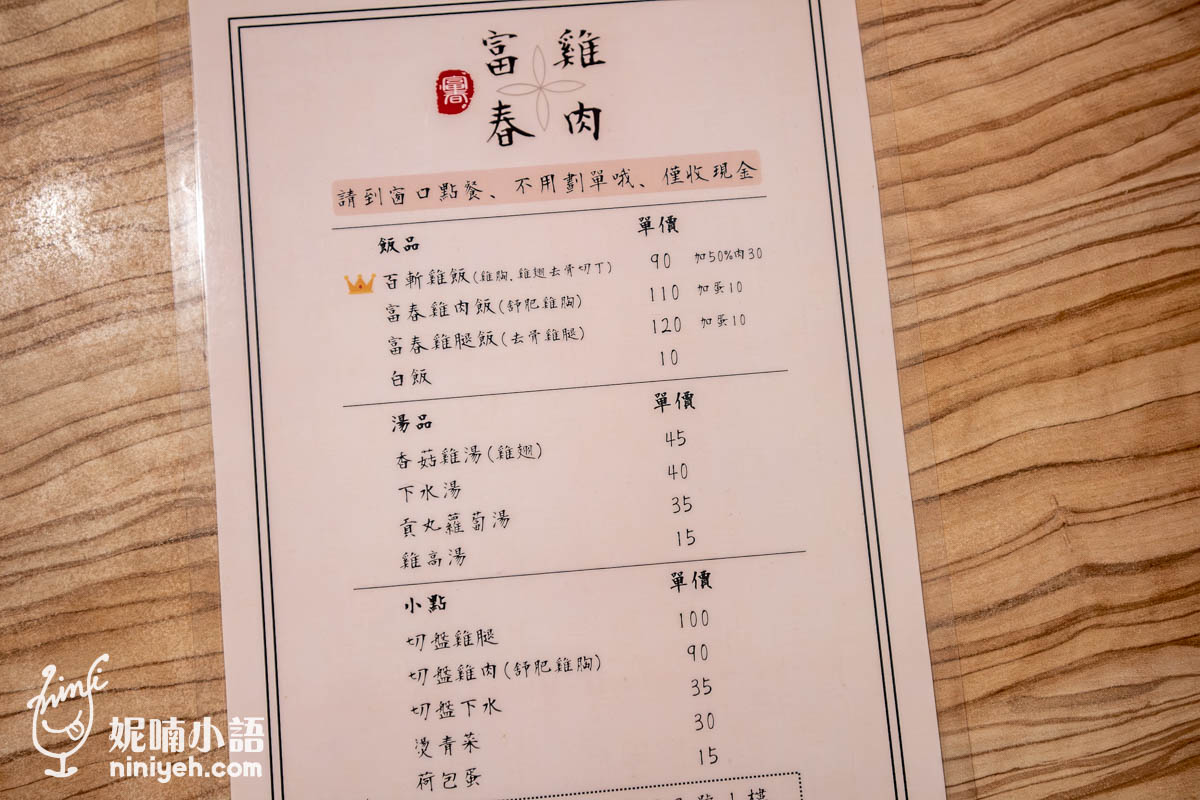 富春
雞肉
富春
請到窗口點餐、不用劃單哦、僅收現金
飯品 單價
百斬雞飯(雞胸.雞翅去骨切丁) 90 加50%肉30
富春雞肉飯(舒肥雞胸) 110 加蛋10
富春雞腿飯(去骨雞腿) 120 加蛋10
白飯 10
湯品 單價
香菇雞湯(雞翅) 45
下水湯 40
貢丸蘿蔔湯 35
雞高湯 15
小點 單價
切盤雞腿 100
切盤雞肉(舒肥雞胸) 90
切盤下水 35
燙青菜 30
荷包蛋 15
妮喃小語
niniyeh.com